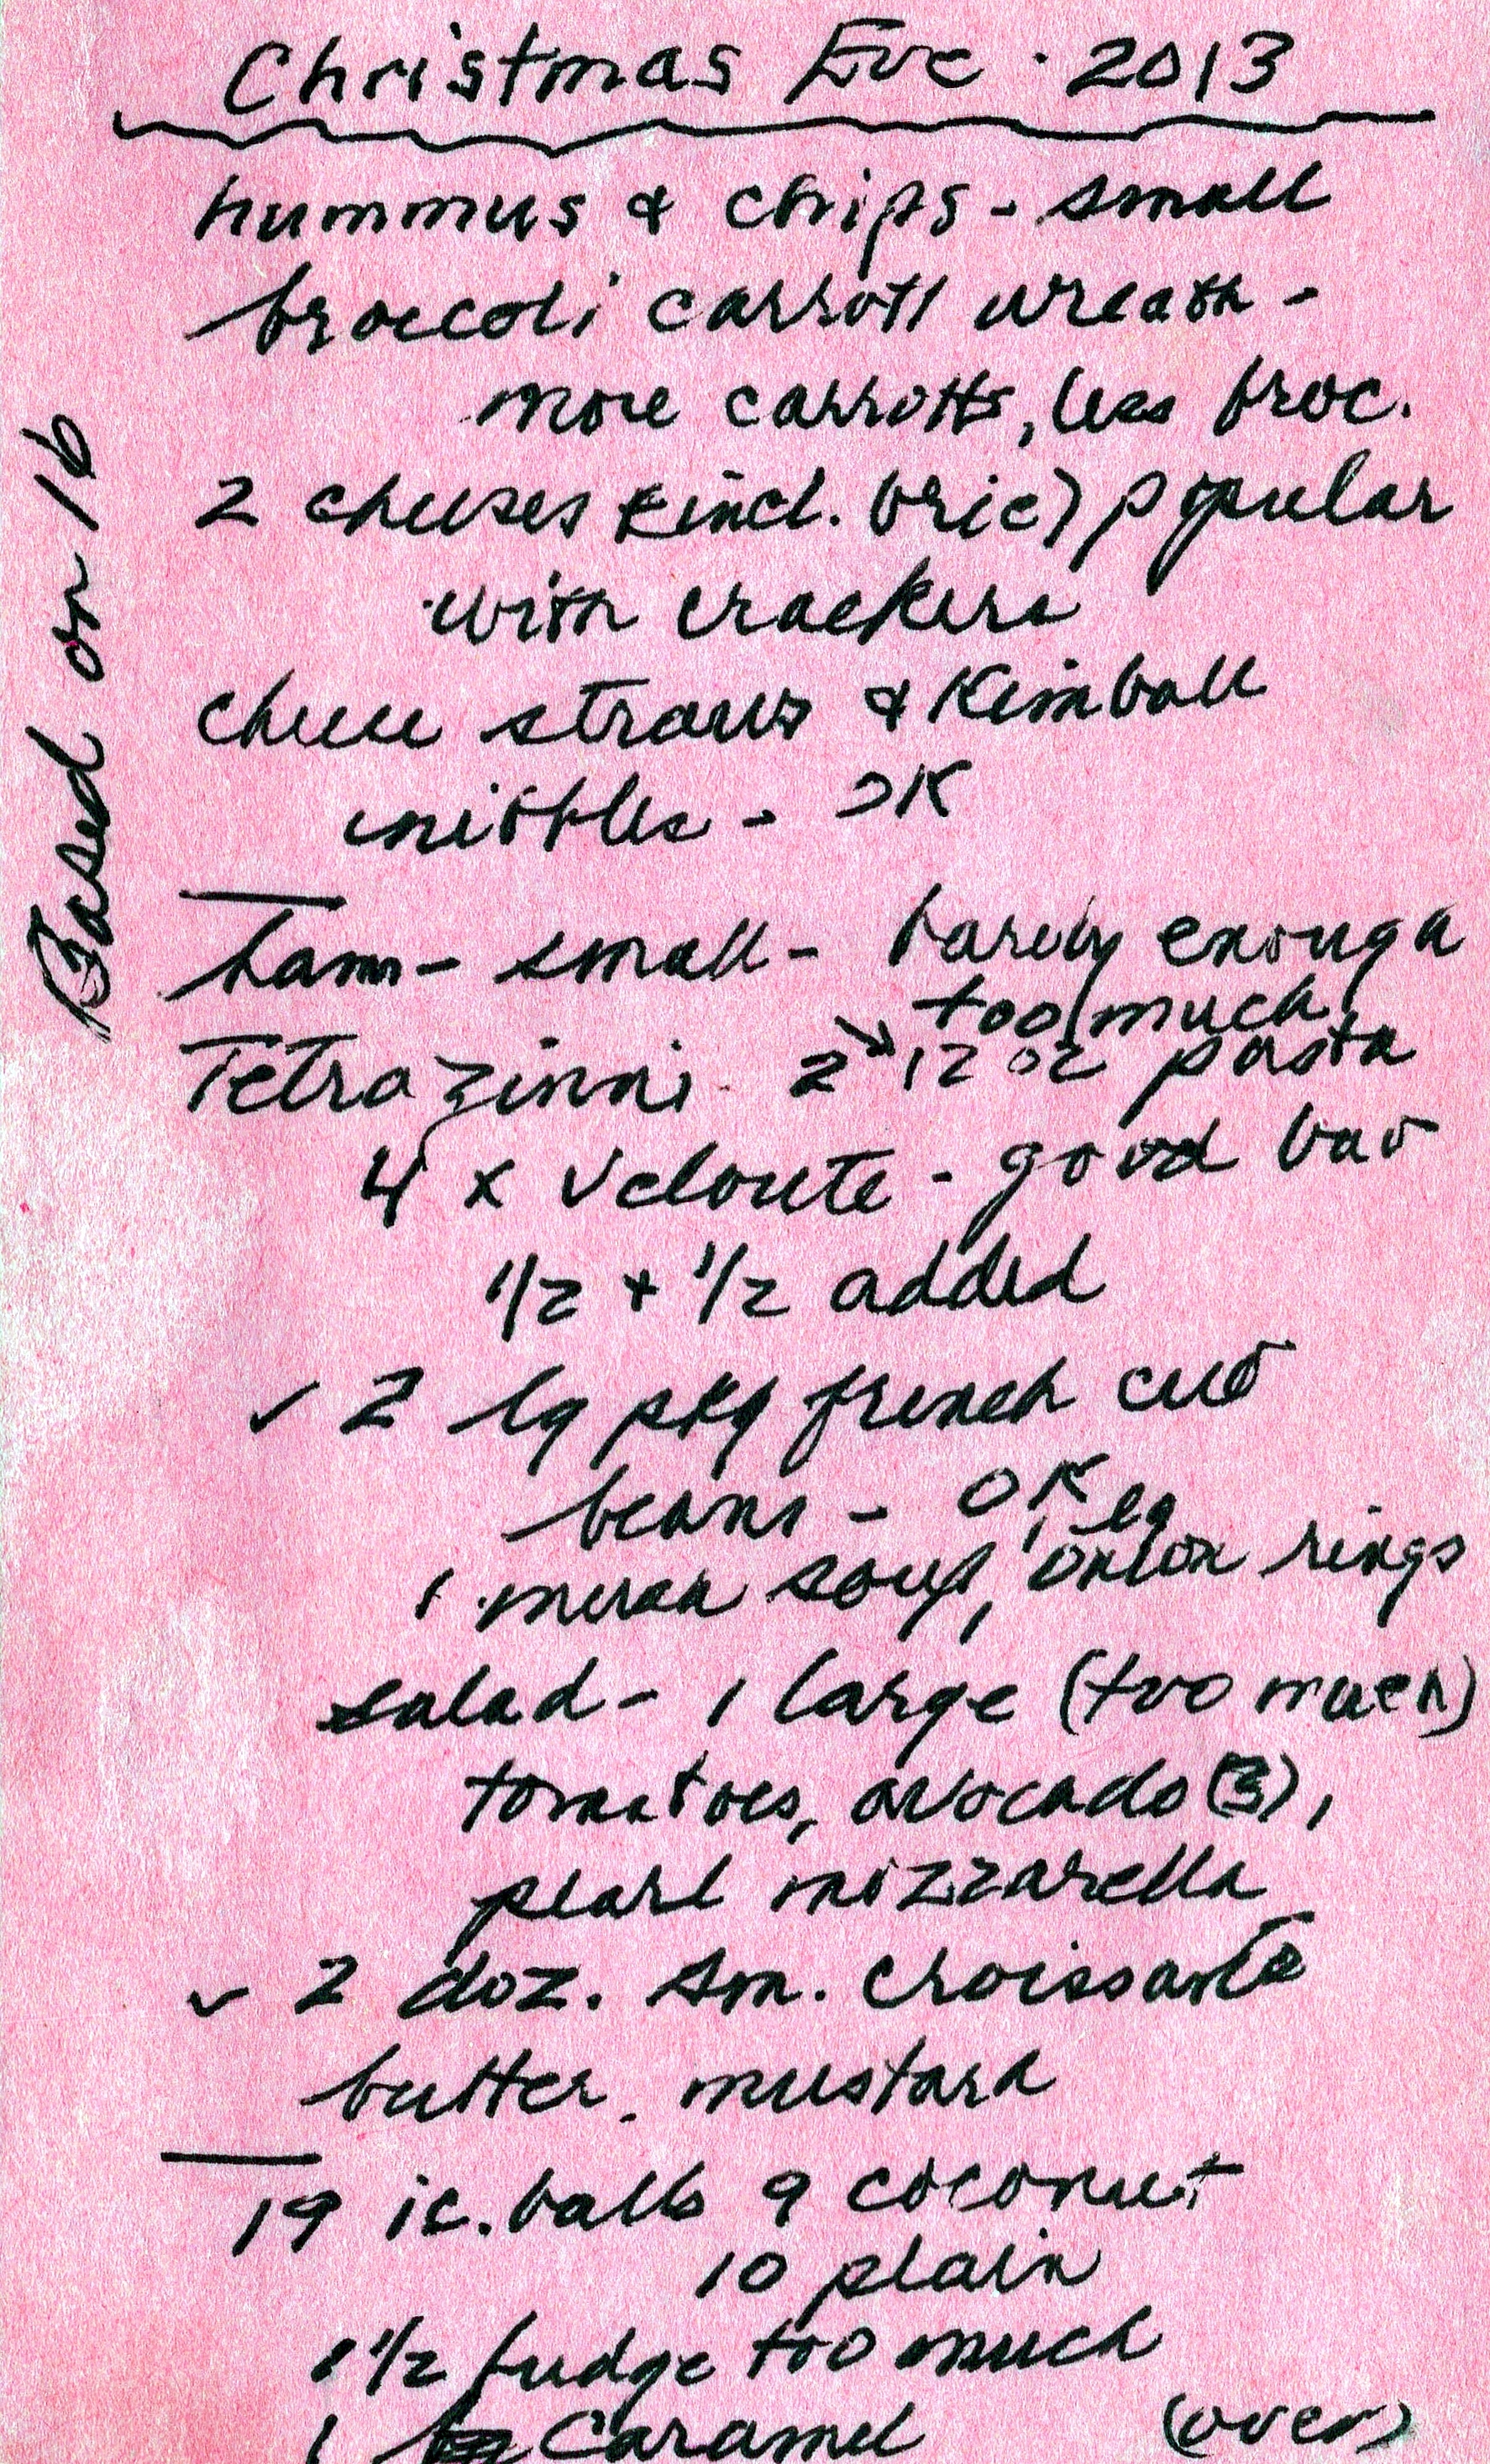 Christmas Eve · 2013
Based on 16
hummus & chips - small
broccoli carrott wreath -
more carrotts, less broc.
2 cheeses (incl. brie) popular
with crackers
cheese straws & Kimball
nibbles - OK
ham - small - barely enough
too much
Tetrazinni 2 12 oz pasta
4 x veloute - good but
1/2 + 1/2 added
✓ 2 lg pkg french cut
beans - OK
lg
1 mush soup, 1 onion rings
salad - 1 large (too much)
tomatoes, avocado (3),
pearl mozzarella
✓ 2 doz. sm. croissants
butter. mustard
19 ic. balls 9 coconut
10 plain
1 1/2 fudge too much
1 Caramel (over)